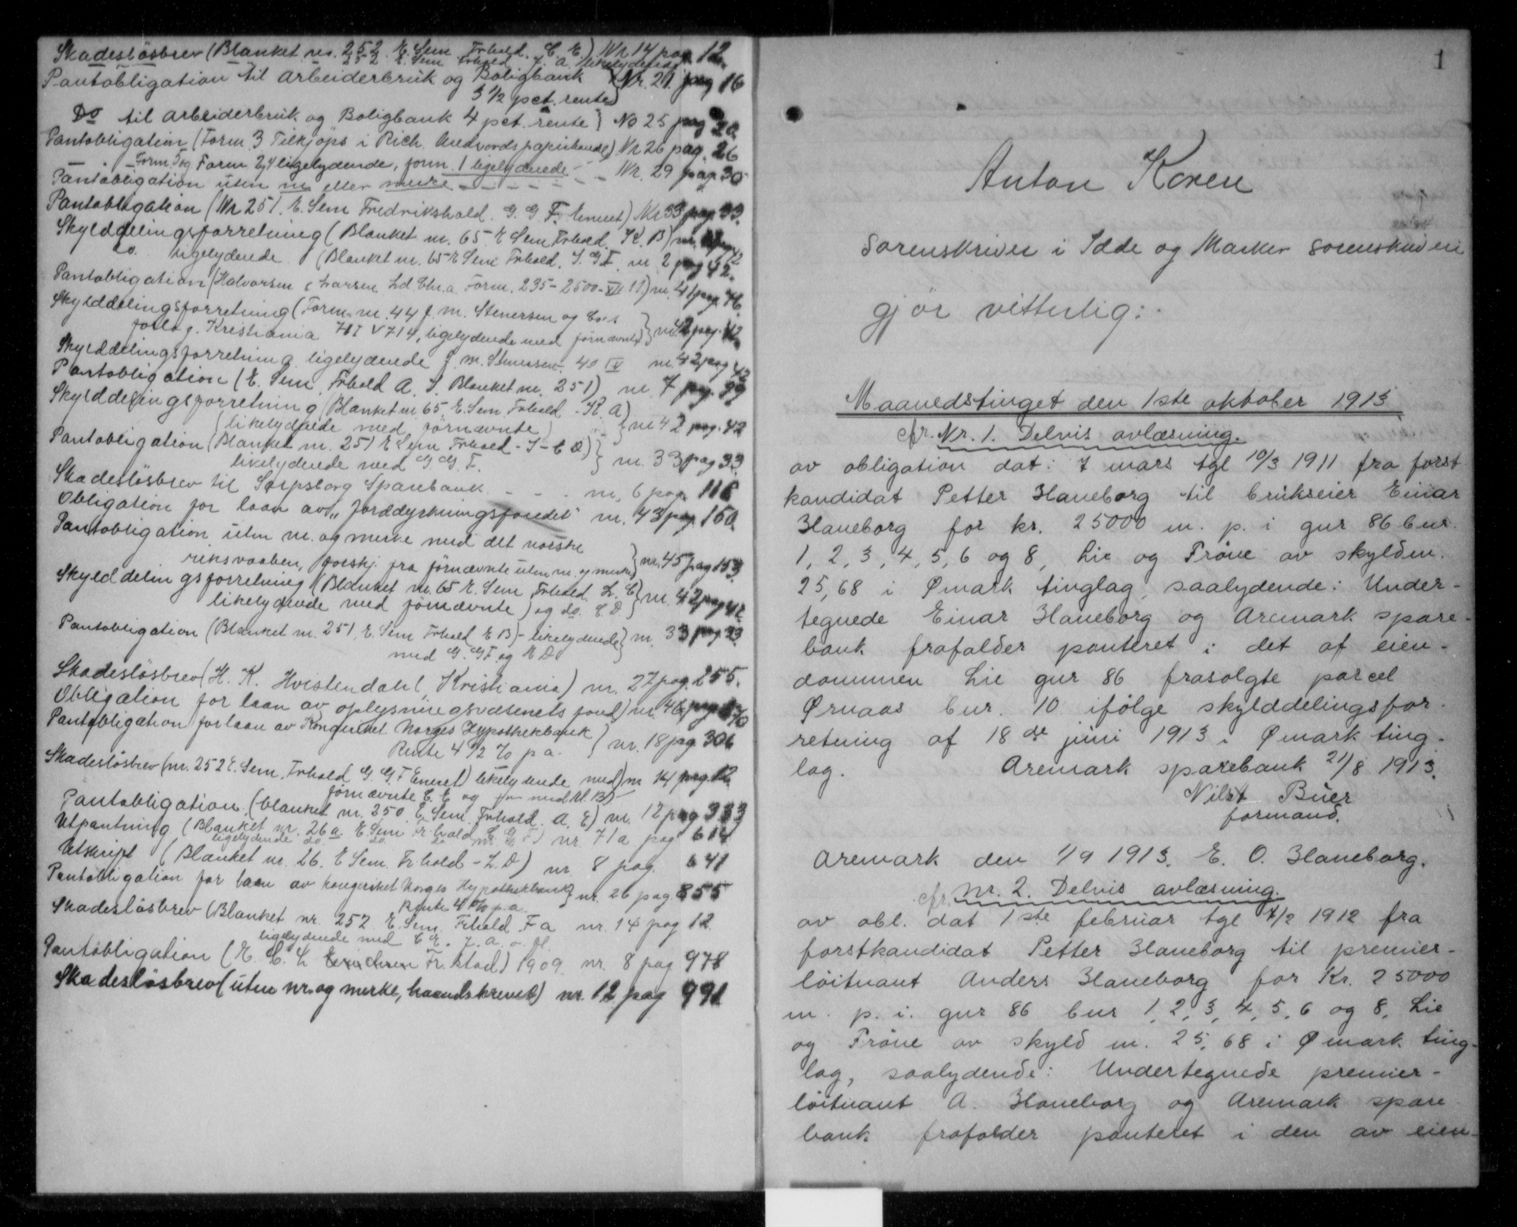 Skadesløsbrev (Blanket nr. 252 E. Sem Frhald. C. E) Nr 14 pag. 12
252 E. Sem Frhald J. a likelydende
Pantobligation til arbeiderbruk og Boligbank Nr. 21 pag 16
3 1/2 pct. rente
Do til arbeiderbruk og Boligbank 4 pct. rente } No 25 pag 20.
Pantobligation (Form. 3 Tilkjøps i Rich. Andvords papirhandel) Nr 26 pag. 26
Form 2,4 ligelydende, form 1 ligelydende Nr. 29 pag 30
Pantobligation uten nr eller merke
Pantobligation (Nr 251. E. Sem Fredrikshald. G. G F. Ennet) Nr 33 pag. 33.
Skylddelingsforretning (Blanket nr. 65 E Sem Frhald. K. B)
do. ligelydende (Blanket nr. 65 E Sem Frhald. J. G F. nr 2 pag 42.
Pantobligation (Halvorsen & Larsen Ltd Chr.a Form. 235-2500-VII 11) nr. 41 pag. 46
Skylddelingsforretning (Form nr. 44 f. m. Stenersen og Co.s
forlag. Kristiania VII V 714, ligelydende med førnævnte) } nr 42 pag. 42
Skylddelingsforretning ligelydende f. m. Stenersen 40 IV nr 42 pag 42
Pantobligation (E. Sem Frhald A. J. Blanket nr. 251) nr 7 pag. 39
Skylddelingsforretning (Blanket nr 65. E. Sem Frhald - K A)
(likelydende med førnævnte) } nr 42 pag. 42
Pantobligation (Blanket nr. 251 E Sem. Frhald - J - C D)
likelydende med G G F. } nr. 33 pag 33.
Skadesløsbrev til Sarpsborg Sparebank - - - nr. 6 pag. 118
Obligation for laan av „Jorddyrkningsfondet" nr. 43 pag. 150.
Pantobligation uten nr. og merke med det norske
riksvaaben, forskj. fra førnævnte uten nr. og merke } nr. 45 pag 153
Skylddelingsforretning (Blanket nr. 65 E. Sem Frhald L. C
likelydende med førnævnte) og do. C D } nr. 42 pag 42
Pantobligation (Blanket nr. 251 E. Sem Frhald E B) - likelydende
med G. G F og E D. } nr. 33 pag. 33
Skadesløsbrev (H. K. Hvistendahl, Kristiania) nr. 27 pag. 255.
Obligation for laan av oplysningsvæsenets fond) nr. 46 pag. 270
Pantobligation for laan av Kongeriket Norges Hypothekbank
Rente 4 1/2 % p a. } nr. 18 pag 306
Skadesløsbrev (nr. 252 E. Sem, Frhald G. G F Ennet) likelydende med nr 14 pag. 12.
førnævnte C. E og
Pantobligation (blanket nr. 250 E. Sem. Frhald. A. E) nr. 12 pag 333
Utpantning (Blanket nr. 26 a E. Sem Frhald C. G. F) nr. 71 a pag 614
Utskrift (Blanket nr. 26. E Sem. Frhald - Z. D) nr. 8 pag 641
Pantobligation for laan av kongeriket Norges Hypothekbank } nr. 26 pag 855
Rente 4 % p. a.
Skadesløsbrev (Blanket nr. 252 E. Sem. Frhald F a nr. 14 pag 12
ligelydende med C E. J. a.
Pantobligation (E. C. L. Fr.stad) 1909. nr. 8 pag 978
Skadesløsbrev (uten nr. og merke, haandskrevet) nr. 12 pag 991
1
Anton Koren
Sorenskriver i Idde og Marker sorenskriveri
gjør vitterlig:
Maanedstinget den 1ste oktober 1913
cfr. Nr. 1. Delvis avlæsning.
av obligation dat: 7 mars tgl 10/3 1911 fra forst
kandidat Petter Haneborg til brukseier Einar
Haneborg for kr. 25000 m. p. i gnr 86 bnr.
1, 2, 3, 4, 5, 6 og 8, Lie og Trøne av skyldm.
25,68 i Ømark tinglag, saalydende: Under-
tegnede Einar Haneborg og Aremark spare-
bank frafalder panteret i det af eien-
dommen Lie gnr 86 frasolgte parcel
Ørnaas bnr. 10 ifølge skylddelingsfor-
retning af 18 de juni 1913 i Ømark ting-
lag. Aremark sparebank 21/8 1913.
Nils Buer
formand.
Aremark den 1/9 1913. E. O. Haneborg.
cfr. nr. 2. Delvis avlæsning.
av obl. dat 1ste februar tgl 7/2 1912 fra
forstkandidat Petter Haneborg til premier-
løitnant Anders Haneborg for Kr. 25000
m. p. i. gnr 86 bnr 1, 2, 3, 4, 5, 6 og 8, Lie
og Trøne av skyld m. 25,68 i Ømark ting-
lag, saalydende: Undertegnede premier-
løitnant A. Haneborg og Aremark spare
bank frafalder panteret i den av eien-